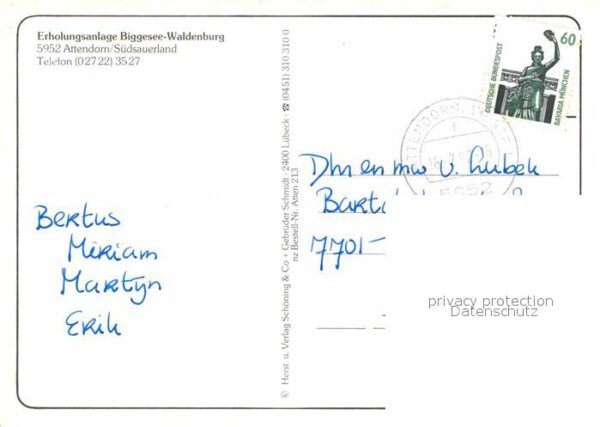 Erholungsanlage Biggesee-Waldenburg
5952 Attendorn/Südsauerland
Telefon (02722) 3527
Bertus
Miriam
Martyn
Erik
© Herst. u. Verlag Schöning & Co + Gebrüder Schmidt · 2400 Lübeck · ☎ (0451) 310 310 0
nz Bestell-Nr. Atten 213
60
DEUTSCHE BUNDESPOST
BAVARIA MÜNCHEN
5952
Dhr en mw v. Lubek
7701-
privacy protection
Datenschutz